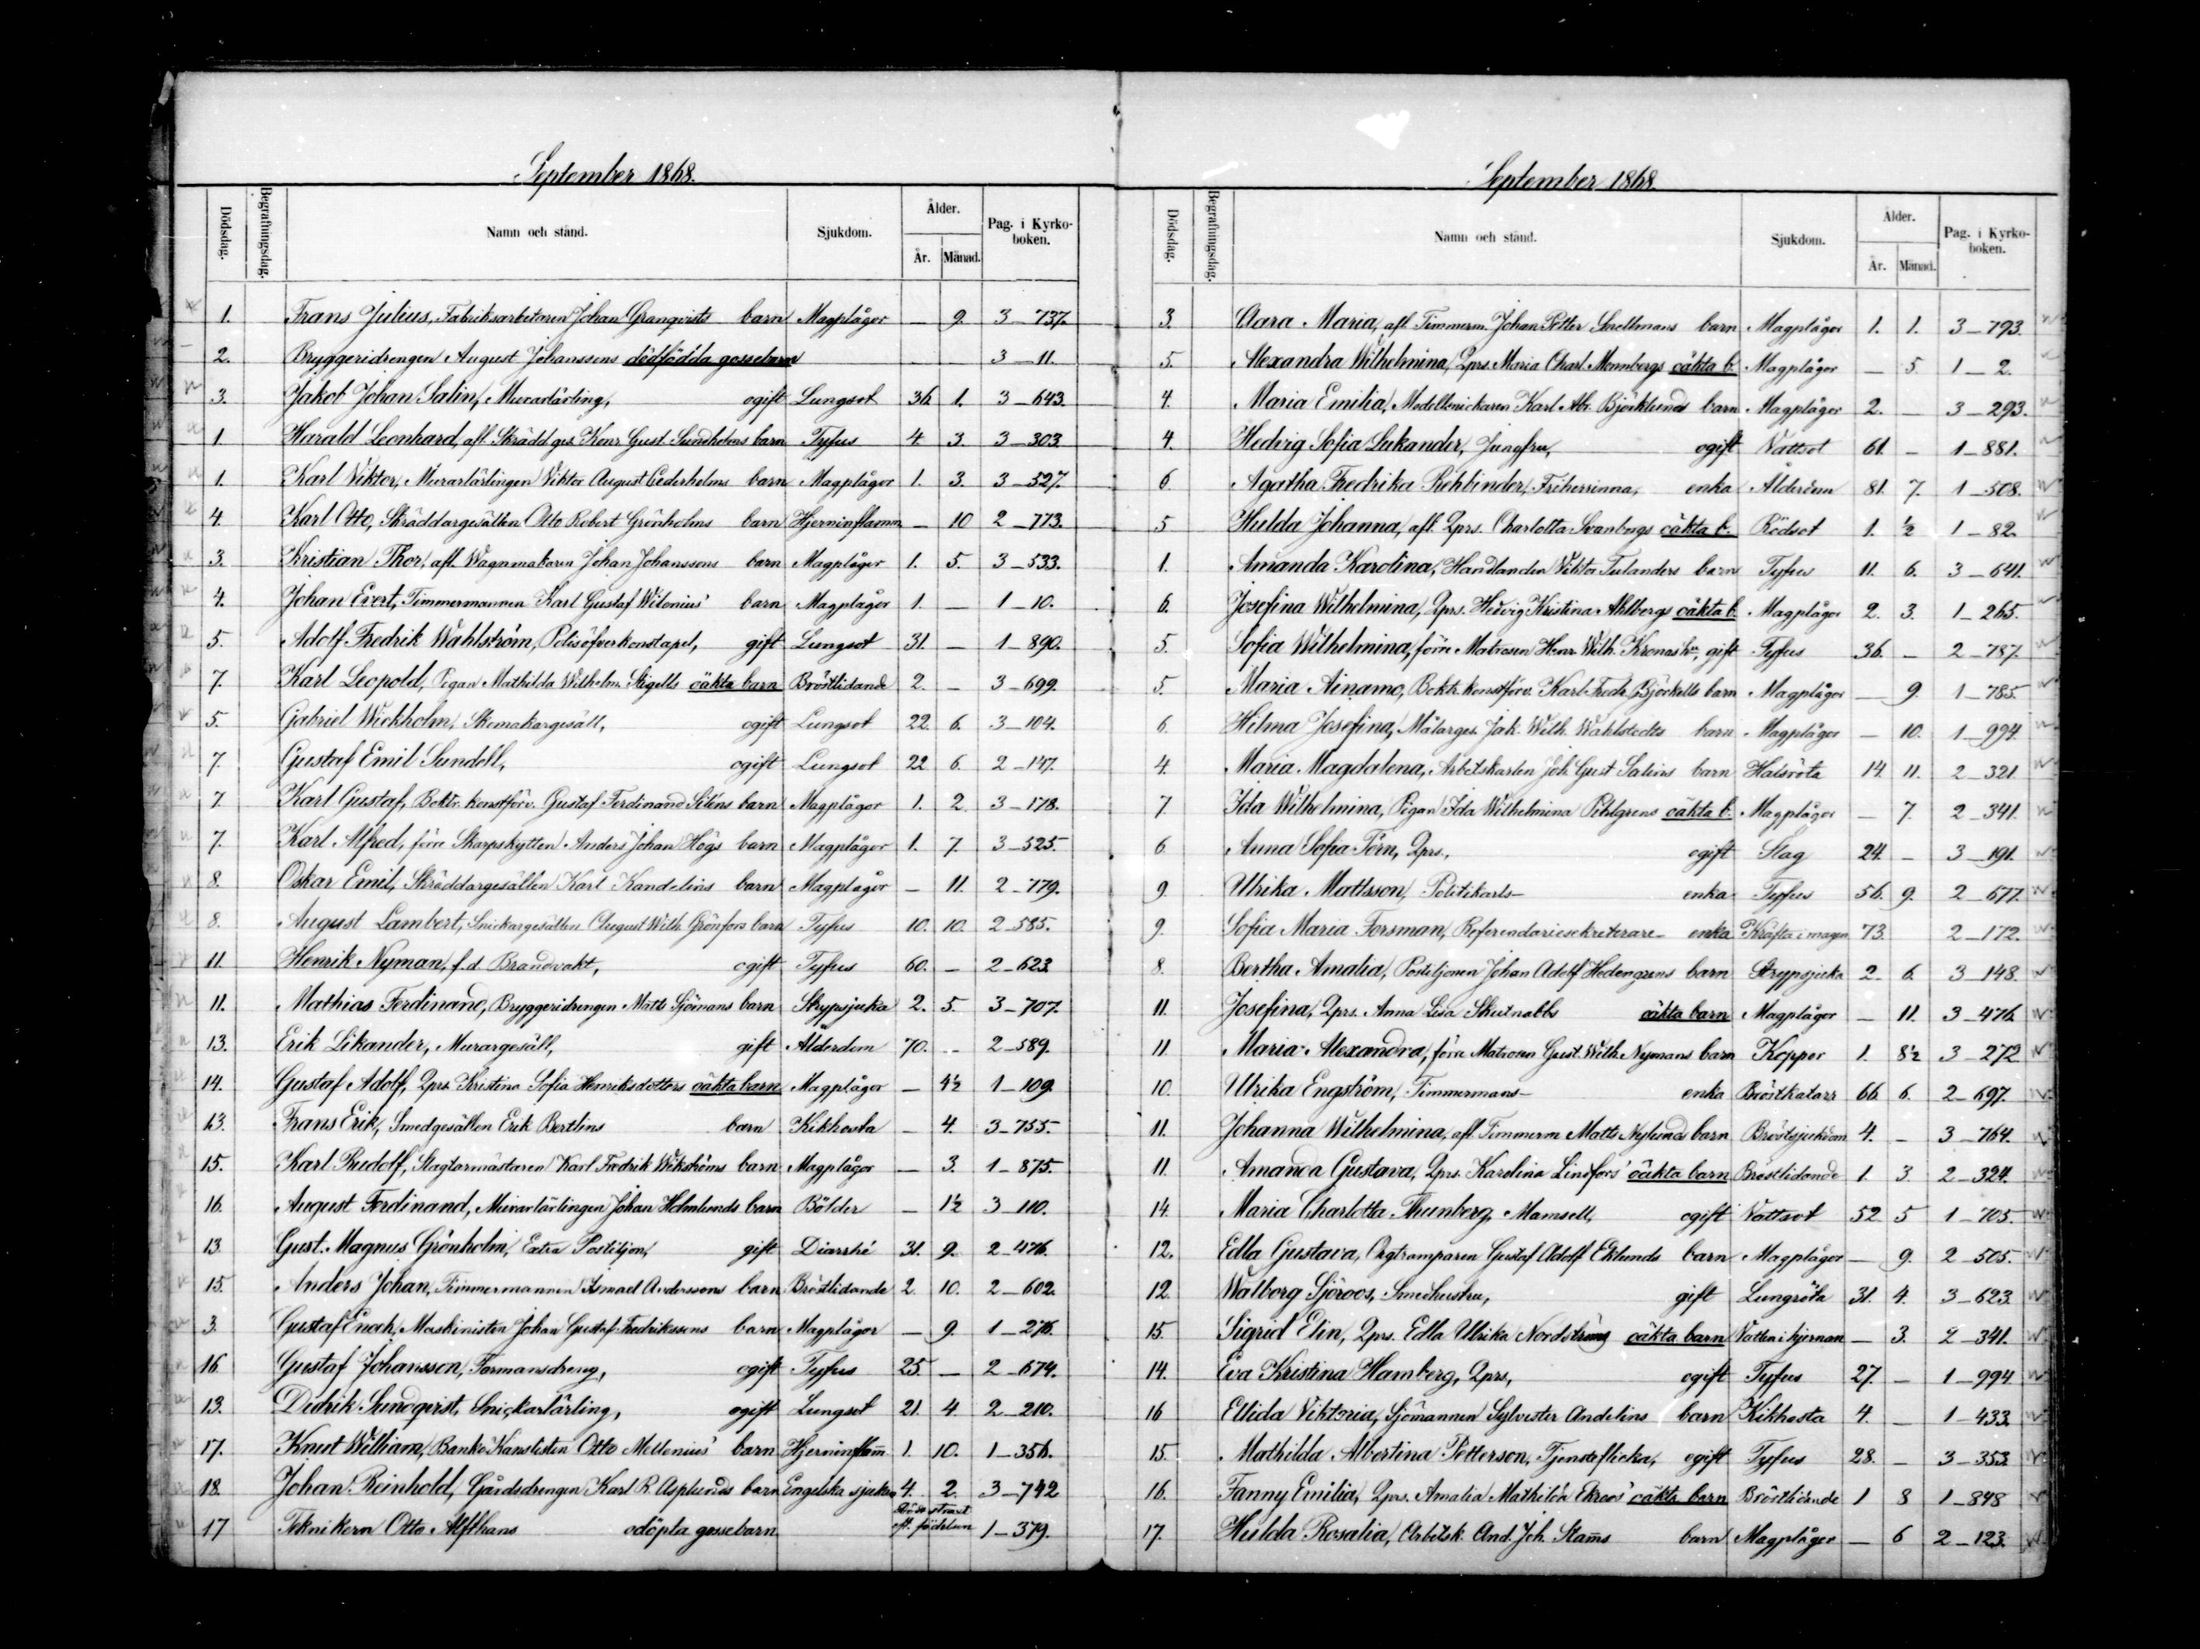 September 1868.
Dödsdag. Begrafningsdag. Namn och stånd. Sjukdom. Ålder. År. Månad. Pag. i Kyrkoboken.
1. Frans Julius, Fabriksarbetaren Johan Granqvists barn Magplågor — 9. 3—737.
2. Bryggeridrengen August Johanssons dödfödda gossebarn 3—11.
3. Jakob Johan Salin, Murarlärling, ogift Lungsot 36. 1. 3—643.
1. Harald Leonhard, afl. Skrädd.ges. Konr. Gust. Sundholms barn Tyfus 4. 3. 3—303.
1. Karl Viktor, Murarlärlingen Viktor August Cederholms barn Magplågor 1. 3. 3—527.
4. Karl Otto, Skräddargesällen Otto Robert Grönholms barn Hjerninflamm. — 10 2—773.
3. Kristian Thor, afl. Wagnmakaren Johan Johanssons barn Magplågor 1. 5. 3—533.
4. Johan Evert, Timmermannen Karl Gustaf Wilenius' barn Magplågor 1. — 1—10.
5. Adolf Fredrik Wahlström, Polisöfverkonstapel, gift Lungsot 31. — 1—890.
7. Karl Leopold, Pigan Mathilda Wilhelm. Stigells oäkta barn Bröstlidande 2. — 3—699.
5. Gabriel Wickholm, Skomakargesäll, ogift Lungsot 22. 6. 3—104.
7. Gustaf Emil Sundell, ogift Lungsot 22 6. 2—147.
7. Karl Gustaf, Boktr. konstförv. Gustaf Ferdinand Siléns barn Magplågor 1. 2. 3—178.
7. Karl Alfred, förre Skarpskytten Anders Johan Högs barn Magplågor 1. 7. 3—525.
8. Oskar Emil, Skräddargesällen Karl Kandelins barn Magplågor — 11. 2—779.
8. August Lambert, Snickargesällen August Wilh. Grönfors barn Tyfus 10. 10. 2—585.
11. Henrik Nyman, f.d. Brandvakt, ogift Tyfus 60. — 2—623.
11. Mathias Ferdinand, Bryggeridrengen Matts Sjömans barn Strypsjuka 2. 5. 3—707.
13. Erik Likander, Murargesäll, gift Ålderdom 70. — 2—589.
14. Gustaf Adolf, Qprs. Kristina Sofia Henriksdotters oäkta barn Magplågor — 4½ 1—109.
13. Frans Erik, Smedgesällen Erik Bertlins barn Kikhosta — 4. 3—755.
15. Karl Rudolf, Slagtarmästaren Karl Fredrik Wikströms barn Magplågor — 3. 1—875.
16. August Ferdinand, Murarlärlingen Johan Holmlunds barn Bölder — 1½ 3—110.
13. Gust. Magnus Grönholm, Extra Postiljon, gift Diarrhé 31. 9. 2—476.
15. Anders Johan, Timmermannen Ismael Anderssons barn Bröstlidande 2 10. 2—602.
3. Gustaf Enoch, Maskinisten Johan Gustaf Fredrikssons barn Magplågor — 9. 1—276.
16 Gustaf Johansson, Formansdreng, ogift Tyfus 25 — 2—674.
13. Didrik Sundqvist, Snickarlärling, ogift Lungsot 21. 4. 2—210.
17. Knut William, Banko Kanslisten Otto Mellenius' barn Hjerninflam̄. 1. 10. 1—356.
18. Johan Reinhold, Gårdsdrengen Karl R. Asplunds barn Engelska sjukan 4. 2. 3—742
17 Teknikern Otto Alfthans odöpta gossebarn Död strart eft. födelsen 1—379.
September 1868.
Dödsdag. Begrafningsdag. Namn och stånd. Sjukdom. Ålder. År. Månad. Pag. i Kyrkoboken.
3. Clara Maria, afl. Timmerm. Johan Petter Snellmans barn Magplågor 1. 1. 3—793.
5. Alexandra Wilhelmina, Qprs. Maria Charl. Mannbergs oäkta b. Magplågor — 5. 1—2.
4. Maria Emilia, Modellsnickaren Karl Abr. Björklunds barn Magplågor 2. — 3—293.
4. Hedvig Sofia Lukander, Jungfru, ogift Vattsot 61. — 1—881.
6 Agatha Fredrika Rehbinder, Friherrinna, enka Ålderdom 81. 7. 1—508.
5 Hulda Johanna, afl. Qprs. Charlotta Svanbergs oäkta b. Rödsot 1. ½ 1—82.
1. Amanda Karolina, Handlanden Viktor Tulanders barn Tyfus 11. 6. 3—641.
6. Josefina Wilhelmina, Qprs. Hedvig Kristina Ahlbergs oäkta b. Magplågor 2. 3. 1—265.
5. Sofia Wilhelmina, förre Matrosen Henr. Wilh. Kronas hu, gift Tyfus 36. — 2—787.
5. Maria Ainamo, Boktr. konstförv. Karl Fredr. Björkells barn Magplågor — 9. 1—785.
6 Hilma Josefina, Målarges. Jak. Wilh. Wahlstedts barn Magplågor — 10. 1—994.
4. Maria Magdalena, Arbetskarlen Joh. Gust. Salins barn Halsröta 14. 11. 2—321.
7. Ida Wilhelmina, Pigan Ida Wilhelmina Pihlgrens oäkta b. Magplågor — 7. 2—341.
6. Anna Sofia Törn, Qprs., ogift Slag 24. — 3—191.
9. Ulrika Mattsson, Politikarls- enka Tyfus 56. 9. 2—677.
9. Sofia Maria Forsman, Referendariesekreterare- enka Kräfta i magen 73. 2—172.
8. Bertha Amalia, Postiljonen Johan Adolf Hedengrens barn Strypsjuka 2. 6. 3—148.
11. Josefina, Qprs. Anna Lisa Skutnabbs oäkta barn Magplågor — 11. 3—476.
11 Maria Alexandra, förre Matrosen Gust. Wilh. Nymans barn Koppor 1. 8½ 3—272
10. Ulrika Engström, Timmermans- enka Bröstkatarr 66 6. 2—697.
11. Johanna Wilhelmina, afl. Timmerm. Matts Nylunds barn Bröstsjukdom 4. — 3—764.
11. Amanda Gustava, Qprs. Karolina Lindfors' oäkta barn Bröstlidande 1. 3 2—324.
14. Maria Charlotta Thunberg, Mamsell, ogift Vattsot 52 5 1—705.
12. Edla Gustava, Orgtramparen Gustaf Adolf Eklunds barn Magplågor — 9. 2—505.
12. Walborg Sjöroos, Smedhustru, gift Lungröta 31. 4. 3—623.
15. Sigrid Elin, Qprs. Edla Ulrika Nordströms oäkta barn Vatten i hjernan — 3. 2—341.
14. Eva Kristina Hamberg, Qprs, ogift Tyfus 27. — 1—994
16 Ellida Viktoria, Sjömannen Sylvester Andelins barn Kikhosta 4. — 1—433.
15. Mathilda Albertina Petterson, Tjensteflicka, ogift Tyfus 28. — 3—353.
16. Fanny Emilia, Qprs. Amalia Mathilda Ekroos' oäkta barn Bröstlidande 1 8 1—848
17. Hulda Rosalia, Arbetsk. And. Joh. Stam̄s barn Magplågor — 6 2—123.